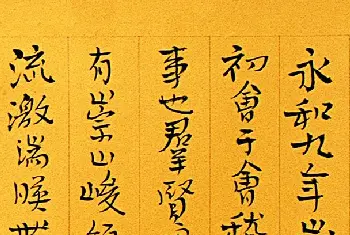 永和九年
初會于會稽
事也羣賢
有崇山峻
流激湍暎